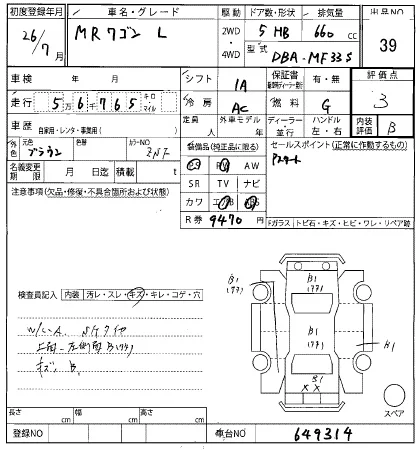 初度登録年月 車名・グレード 駆動 ドア数・形状 排気量 出品NO
26/7月 MRワゴン L 2WD・4WD 5 HB 660 cc 39
型式 DBA-MF33S
車検 年 月 シフト IA 保証書 有・無 評価点
走行 5万6千765 キロ・マイル 冷房 AC 燃料 G 3
車歴 自家用・レンタ・事業用( ) 定員 人 外車モデル 年 ディーラー・並行 ハンドル 左・右 内装評価 B
外色 元色 ブラウン 色替 カラーNO ZNF 装備品(純正品に限る) セールスポイント(正常に作動するもの)
名義変更期限 月 日迄 積載 t PS PW AW
注意事項(欠品・修復・不具合箇所および状態) SR TV ナビ
カワ エアB ABS
R券 9470 円
Fガラス・トビ石・キズ・ヒビ・ワレ・リペア跡
検査員記入 内装 汚レ・スレ・キズ・キレ・コゲ・穴
キズ B.
B1
B1
B1
B1
A1
スペア
長さ cm 幅 cm 高さ cm
登録NO 車台NO 649314